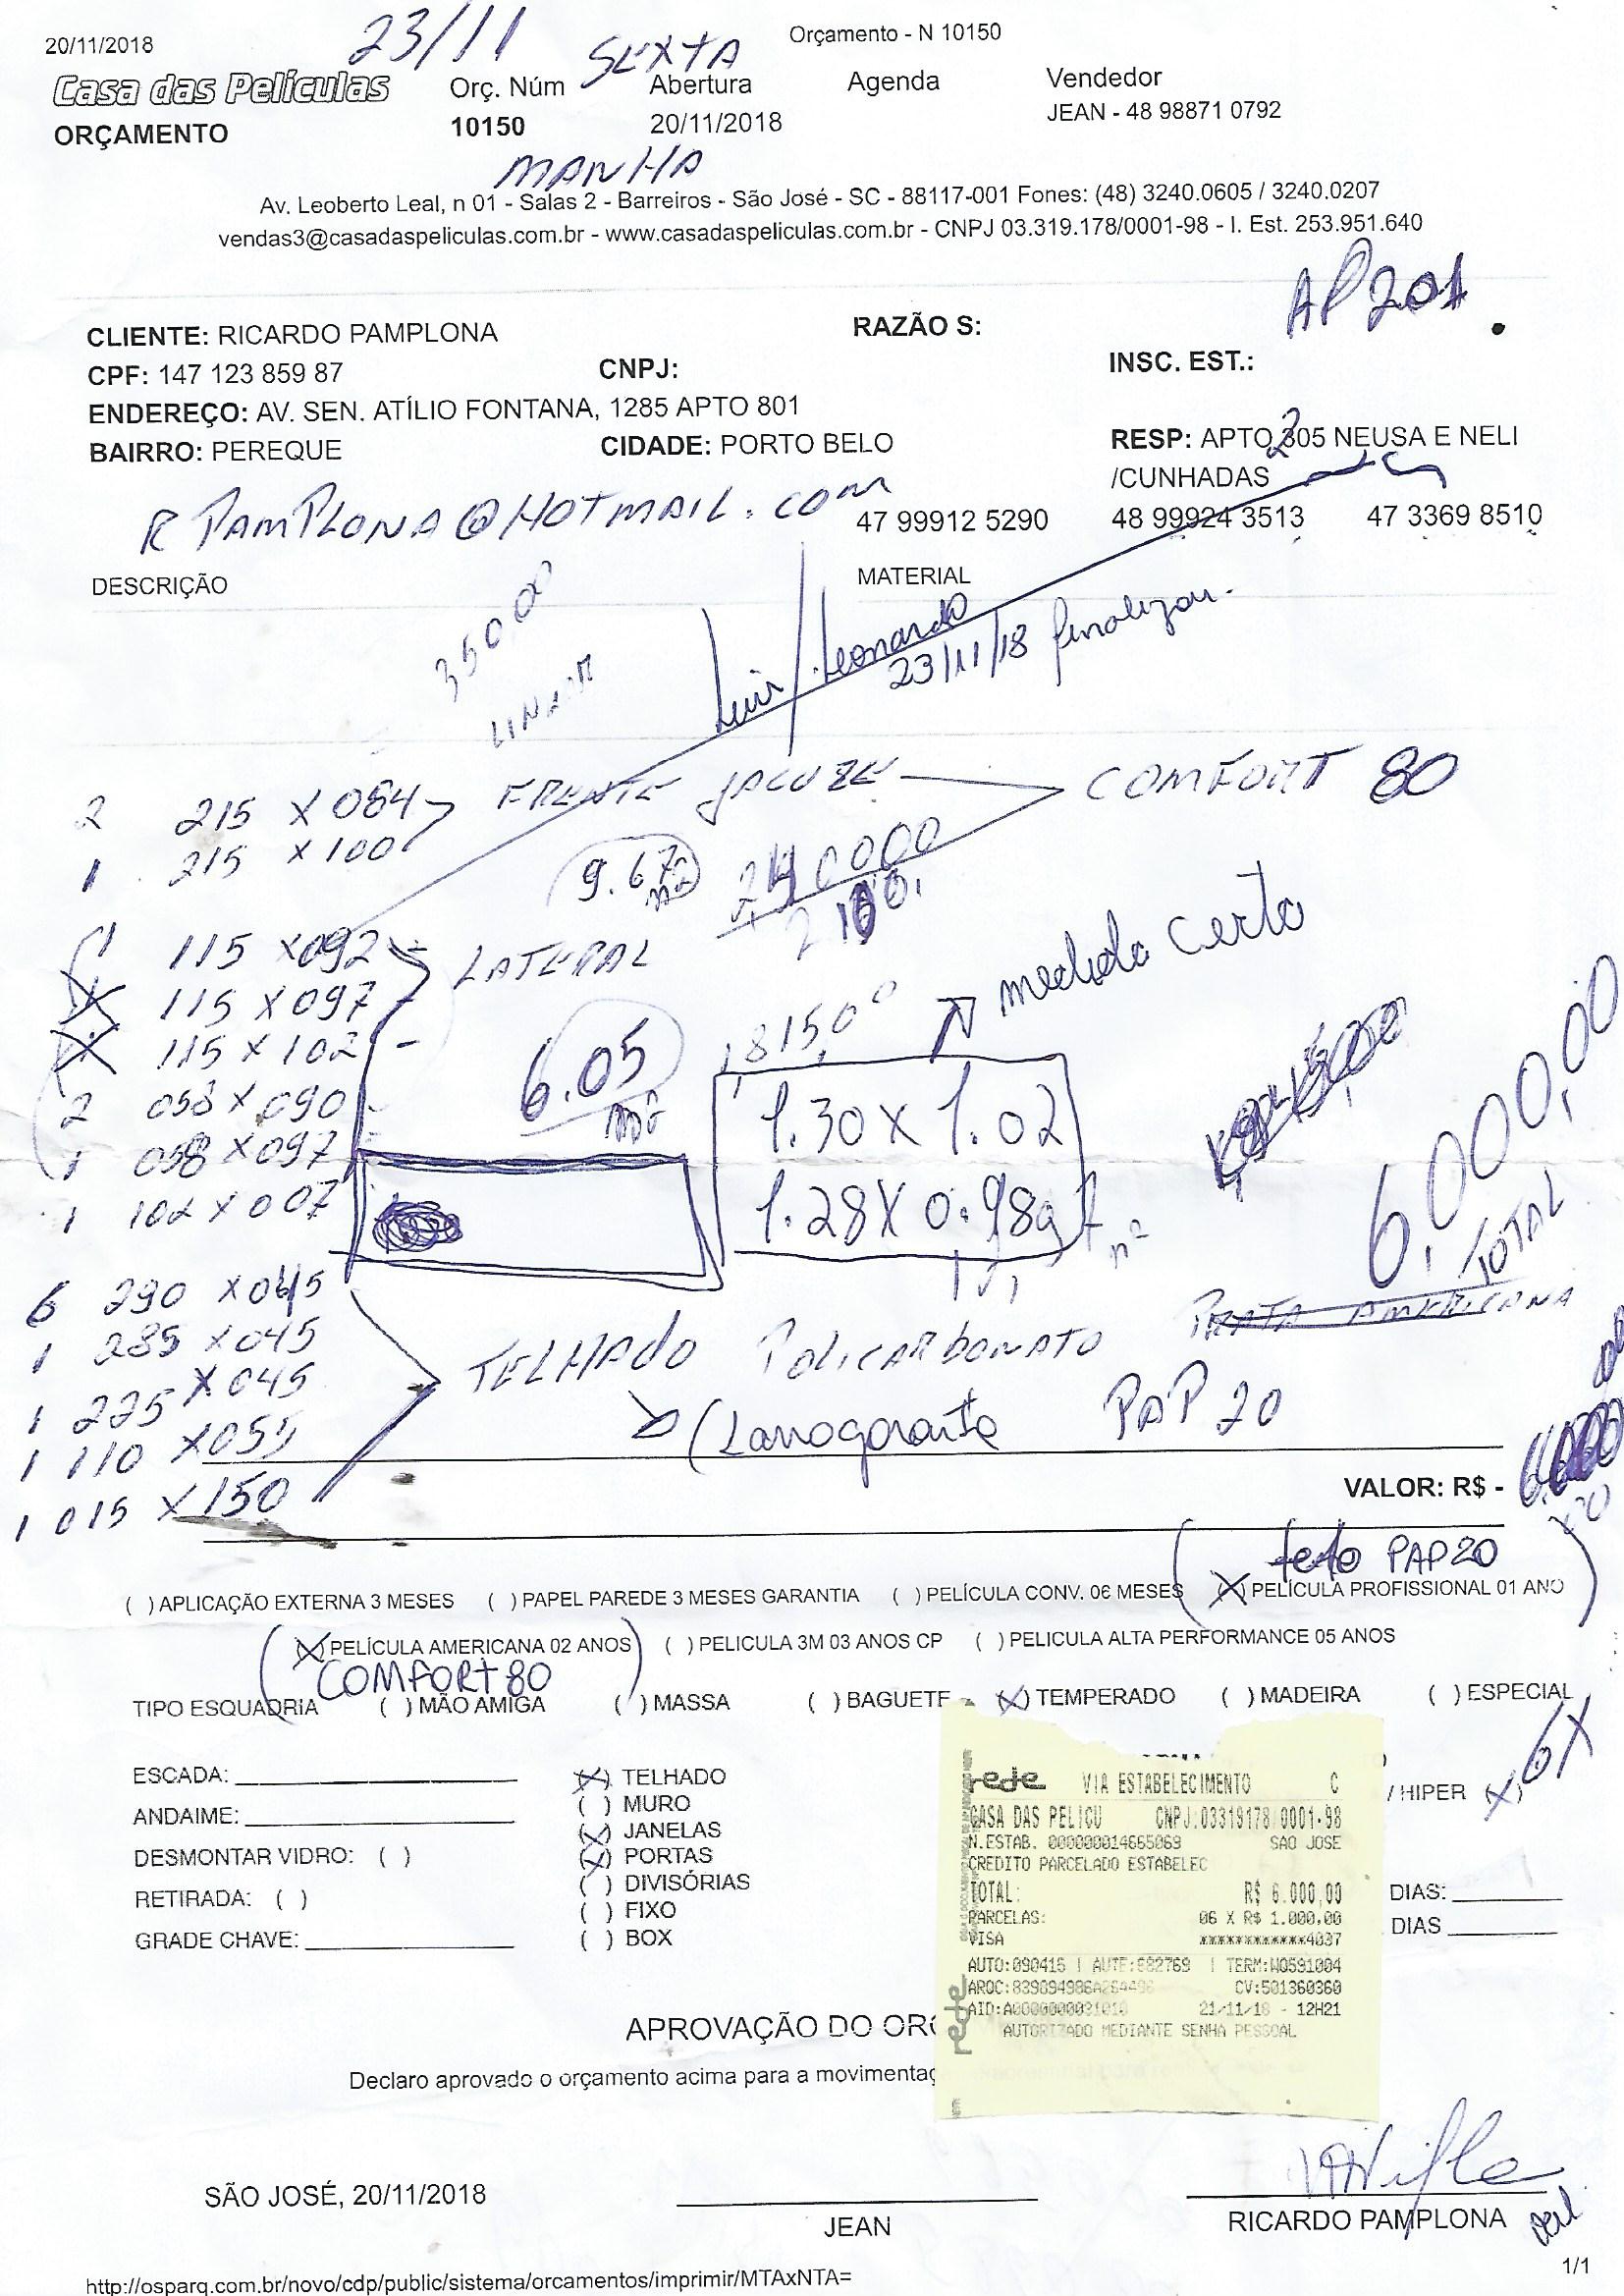 20/11/2018
23/11
SEXTA
Orçamento - N 10150
Casa das Películas
Orç. Núm
Abertura
Agenda
Vendedor
ORÇAMENTO
10150
20/11/2018
JEAN - 48 98871 0792
MANHA
Av. Leoberto Leal, n 01 - Salas 2 - Barreiros - São José - SC - 88117-001 Fones: (48) 3240.0605 / 3240.0207
vendas3@casadaspeliculas.com.br - www.casadaspeliculas.com.br - CNPJ 03.319.178/0001-98 - I. Est. 253.951.640
AP201
CLIENTE: RICARDO PAMPLONA
RAZÃO S:
CPF: 147 123 859 87
CNPJ:
INSC. EST.:
ENDEREÇO: AV. SEN. ATÍLIO FONTANA, 1285 APTO 801
BAIRRO: PEREQUE
CIDADE: PORTO BELO
RESP: APTO 305 NEUSA E NELI
2
/CUNHADAS
RPAMPLONA@HOTMAIL.COM
47 99912 5290
48 99924 3513
47 3369 8510
DESCRIÇÃO
MATERIAL
35000
LINEAR
Luis/Leonardo
23/11/18 finalizou.
2 215 X 084
FRENTE JACUZE
COMFORT 80
1 215 X 100
9.67 m²
1 115 X 092
LATERAL
medida certa
115 X 097
115 X 102
6.05 m²
1,815,00
2 058 X 090
1.30 X 1.02
1 058 X 097
1.28 X 0.98
1 102 X 007
6.000,00
TOTAL
6 290 X 045
PRATA AMERICANA
1 285 X 045
TELHADO POLICARBONATO
1 225 X 045
PAP 20
1 110 X 055
VALOR: R$ -
1 015 X 150
teto PAP20
( ) APLICAÇÃO EXTERNA 3 MESES ( ) PAPEL PAREDE 3 MESES GARANTIA ( ) PELÍCULA CONV. 06 MESES (X) PELÍCULA PROFISSIONAL 01 ANO
(X) PELÍCULA AMERICANA 02 ANOS ( ) PELICULA 3M 03 ANOS CP ( ) PELICULA ALTA PERFORMANCE 05 ANOS
COMFORT 80
TIPO ESQUADRIA ( ) MÃO AMIGA ( ) MASSA ( ) BAGUETE (X) TEMPERADO ( ) MADEIRA ( ) ESPECIAL
6X
ESCADA:
(X) TELHADO
/ HIPER (X)
( ) MURO
ANDAIME:
(X) JANELAS
DESMONTAR VIDRO: ( )
(X) PORTAS
( ) DIVISÓRIAS
DIAS:
RETIRADA: ( )
( ) FIXO
DIAS
GRADE CHAVE:
( ) BOX
rede VIA ESTABELECIMENTO C
CASA DAS PELICU CNPJ:03319178/0001-98
N.ESTAB. 000000014665069 SAO JOSE
CREDITO PARCELADO ESTABELEC
TOTAL: R$ 6.000,00
PARCELAS: 06 X R$ 1.000,00
VISA ************4037
AUTO:090415 | AUTE:682769 | TERM:WO591004
CV:501360360
21/11/18 - 12H21
AUTORIZADO MEDIANTE SENHA PESSOAL
rede
APROVAÇÃO DO ORÇ
Declaro aprovado o orçamento acima para a movimentaç
SÃO JOSÉ, 20/11/2018
JEAN
RICARDO PAMPLONA
1/1
http://osparq.com.br/novo/cdp/public/sistema/orcamentos/imprimir/MTAxNTA=